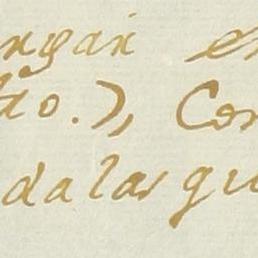 ngan en
to.), Con
da las qu